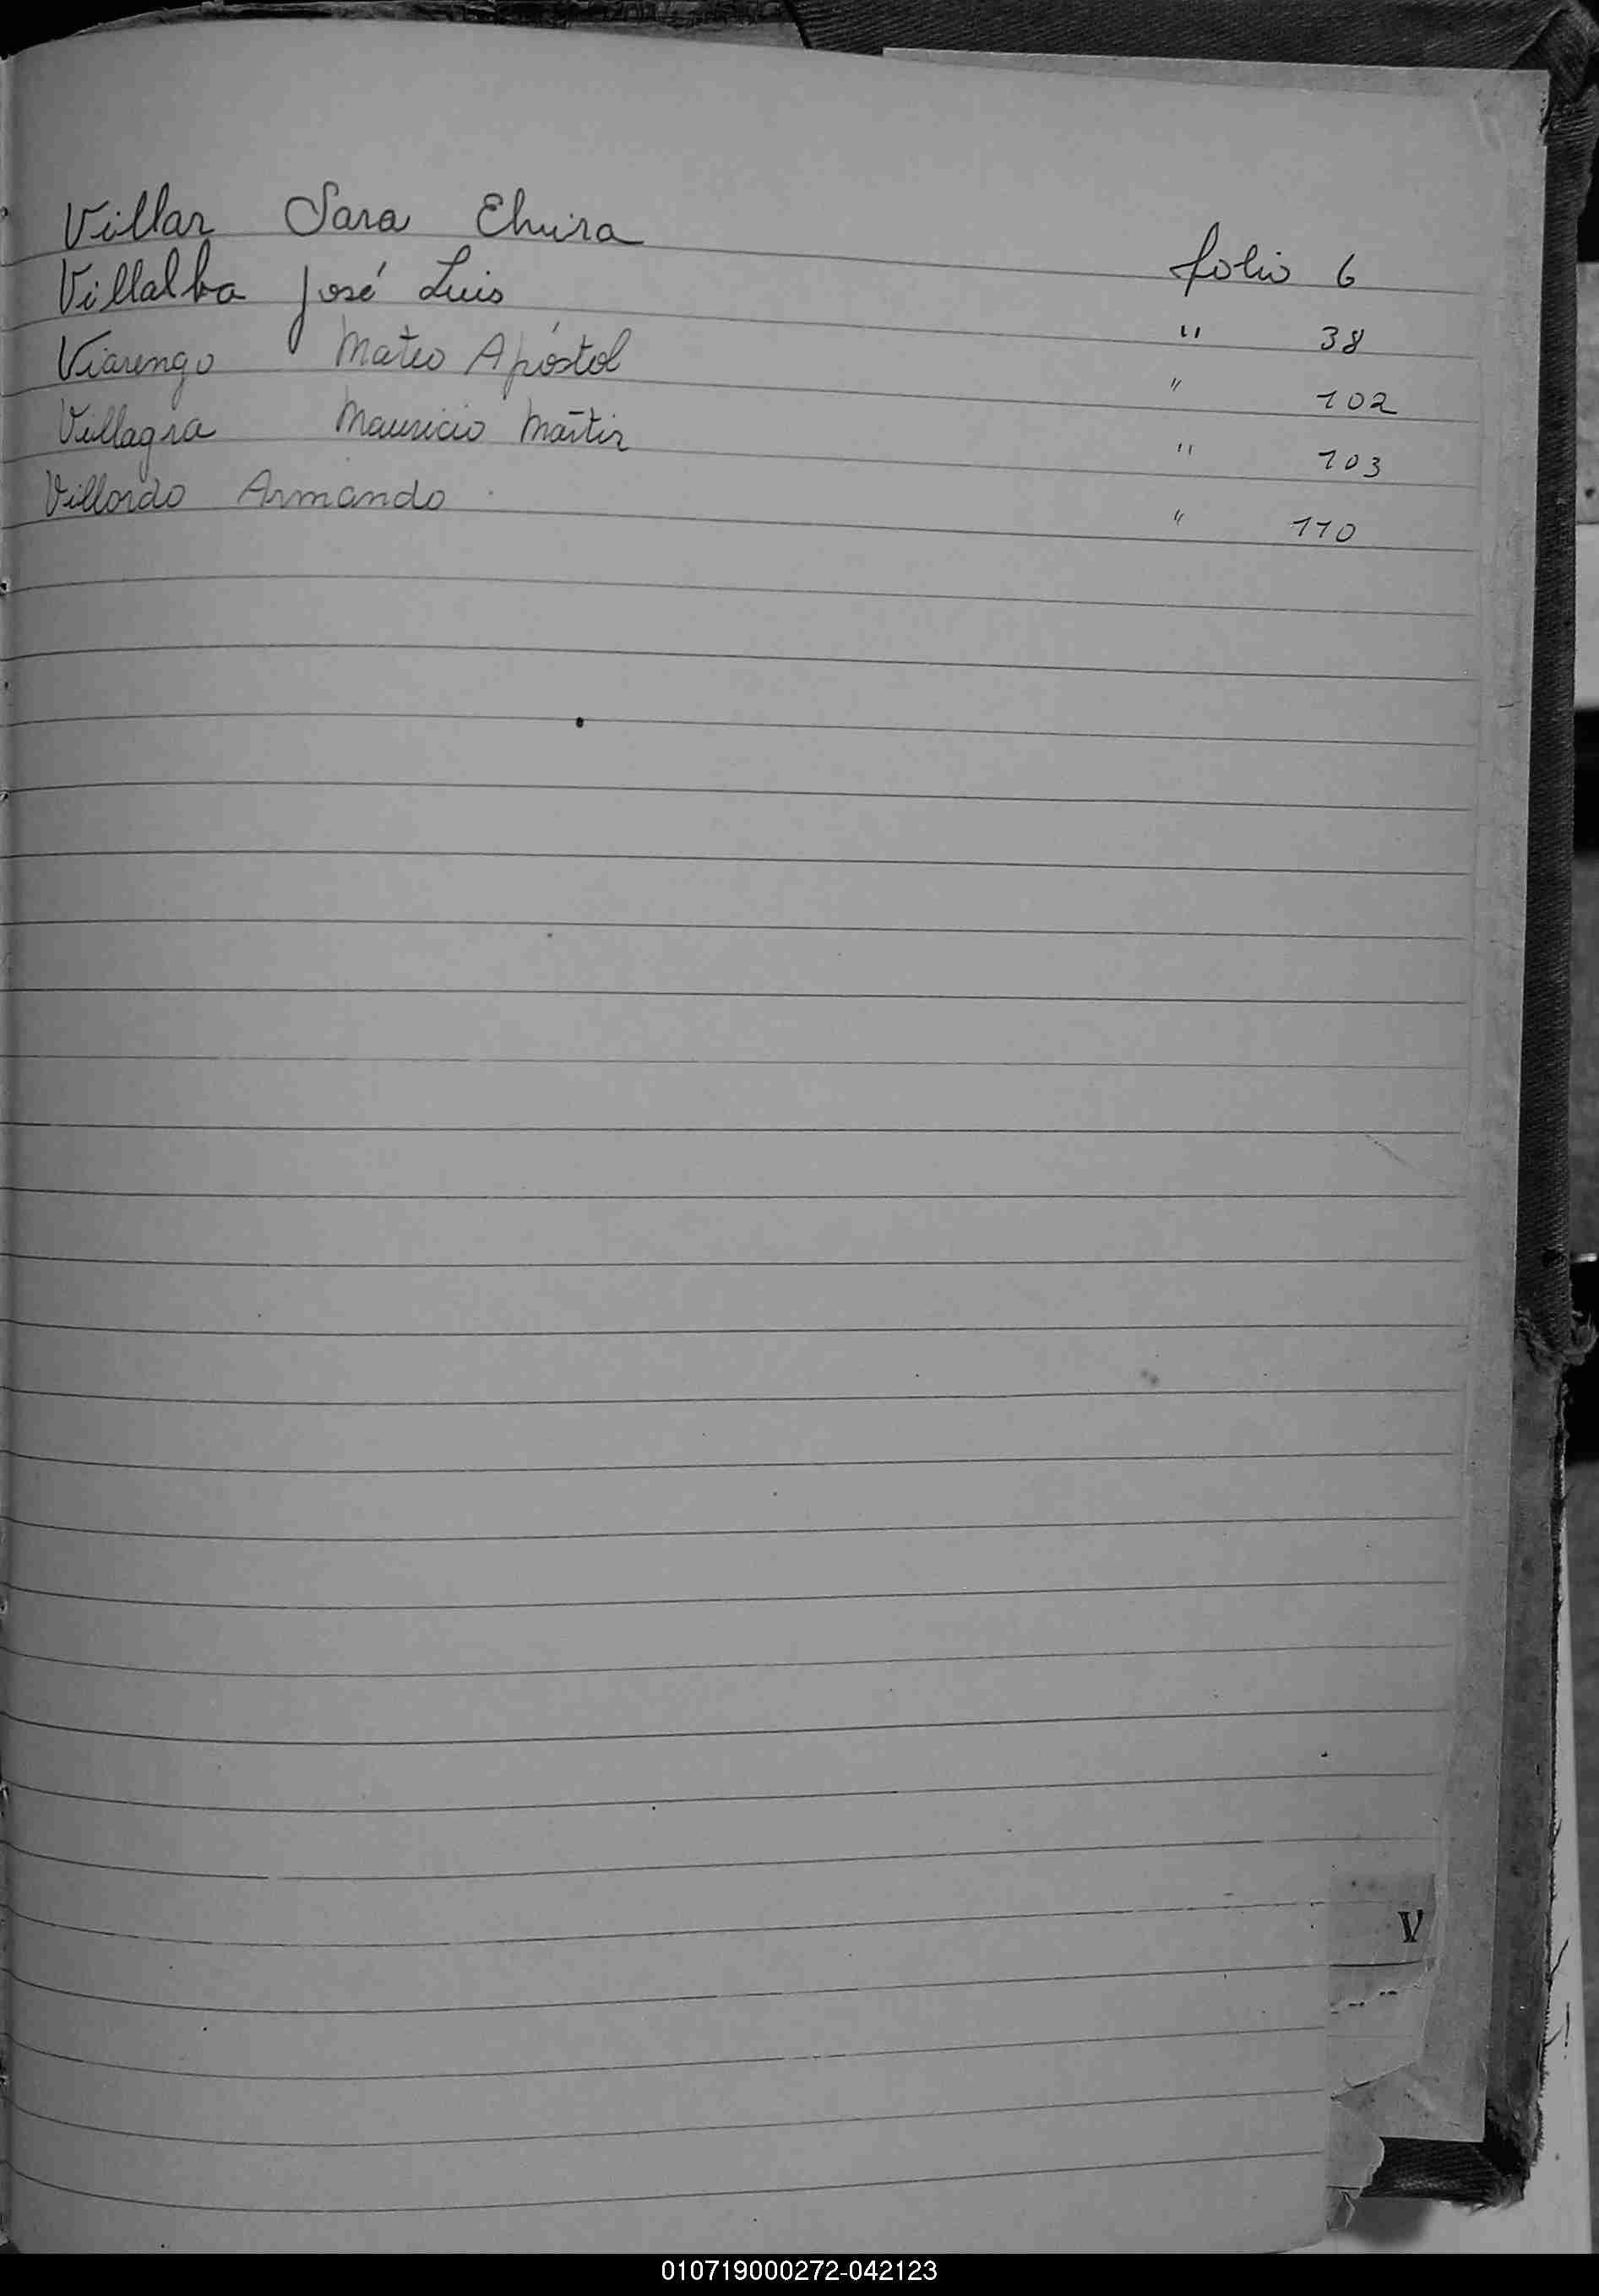 Villar Sara Elvira folio 6
Villalba José Luis " 38
Viarengo Mateo Apóstol " 102
Villagra Mauricio Martin " 103
Villordo Armando " 110
V
010719000272-042123